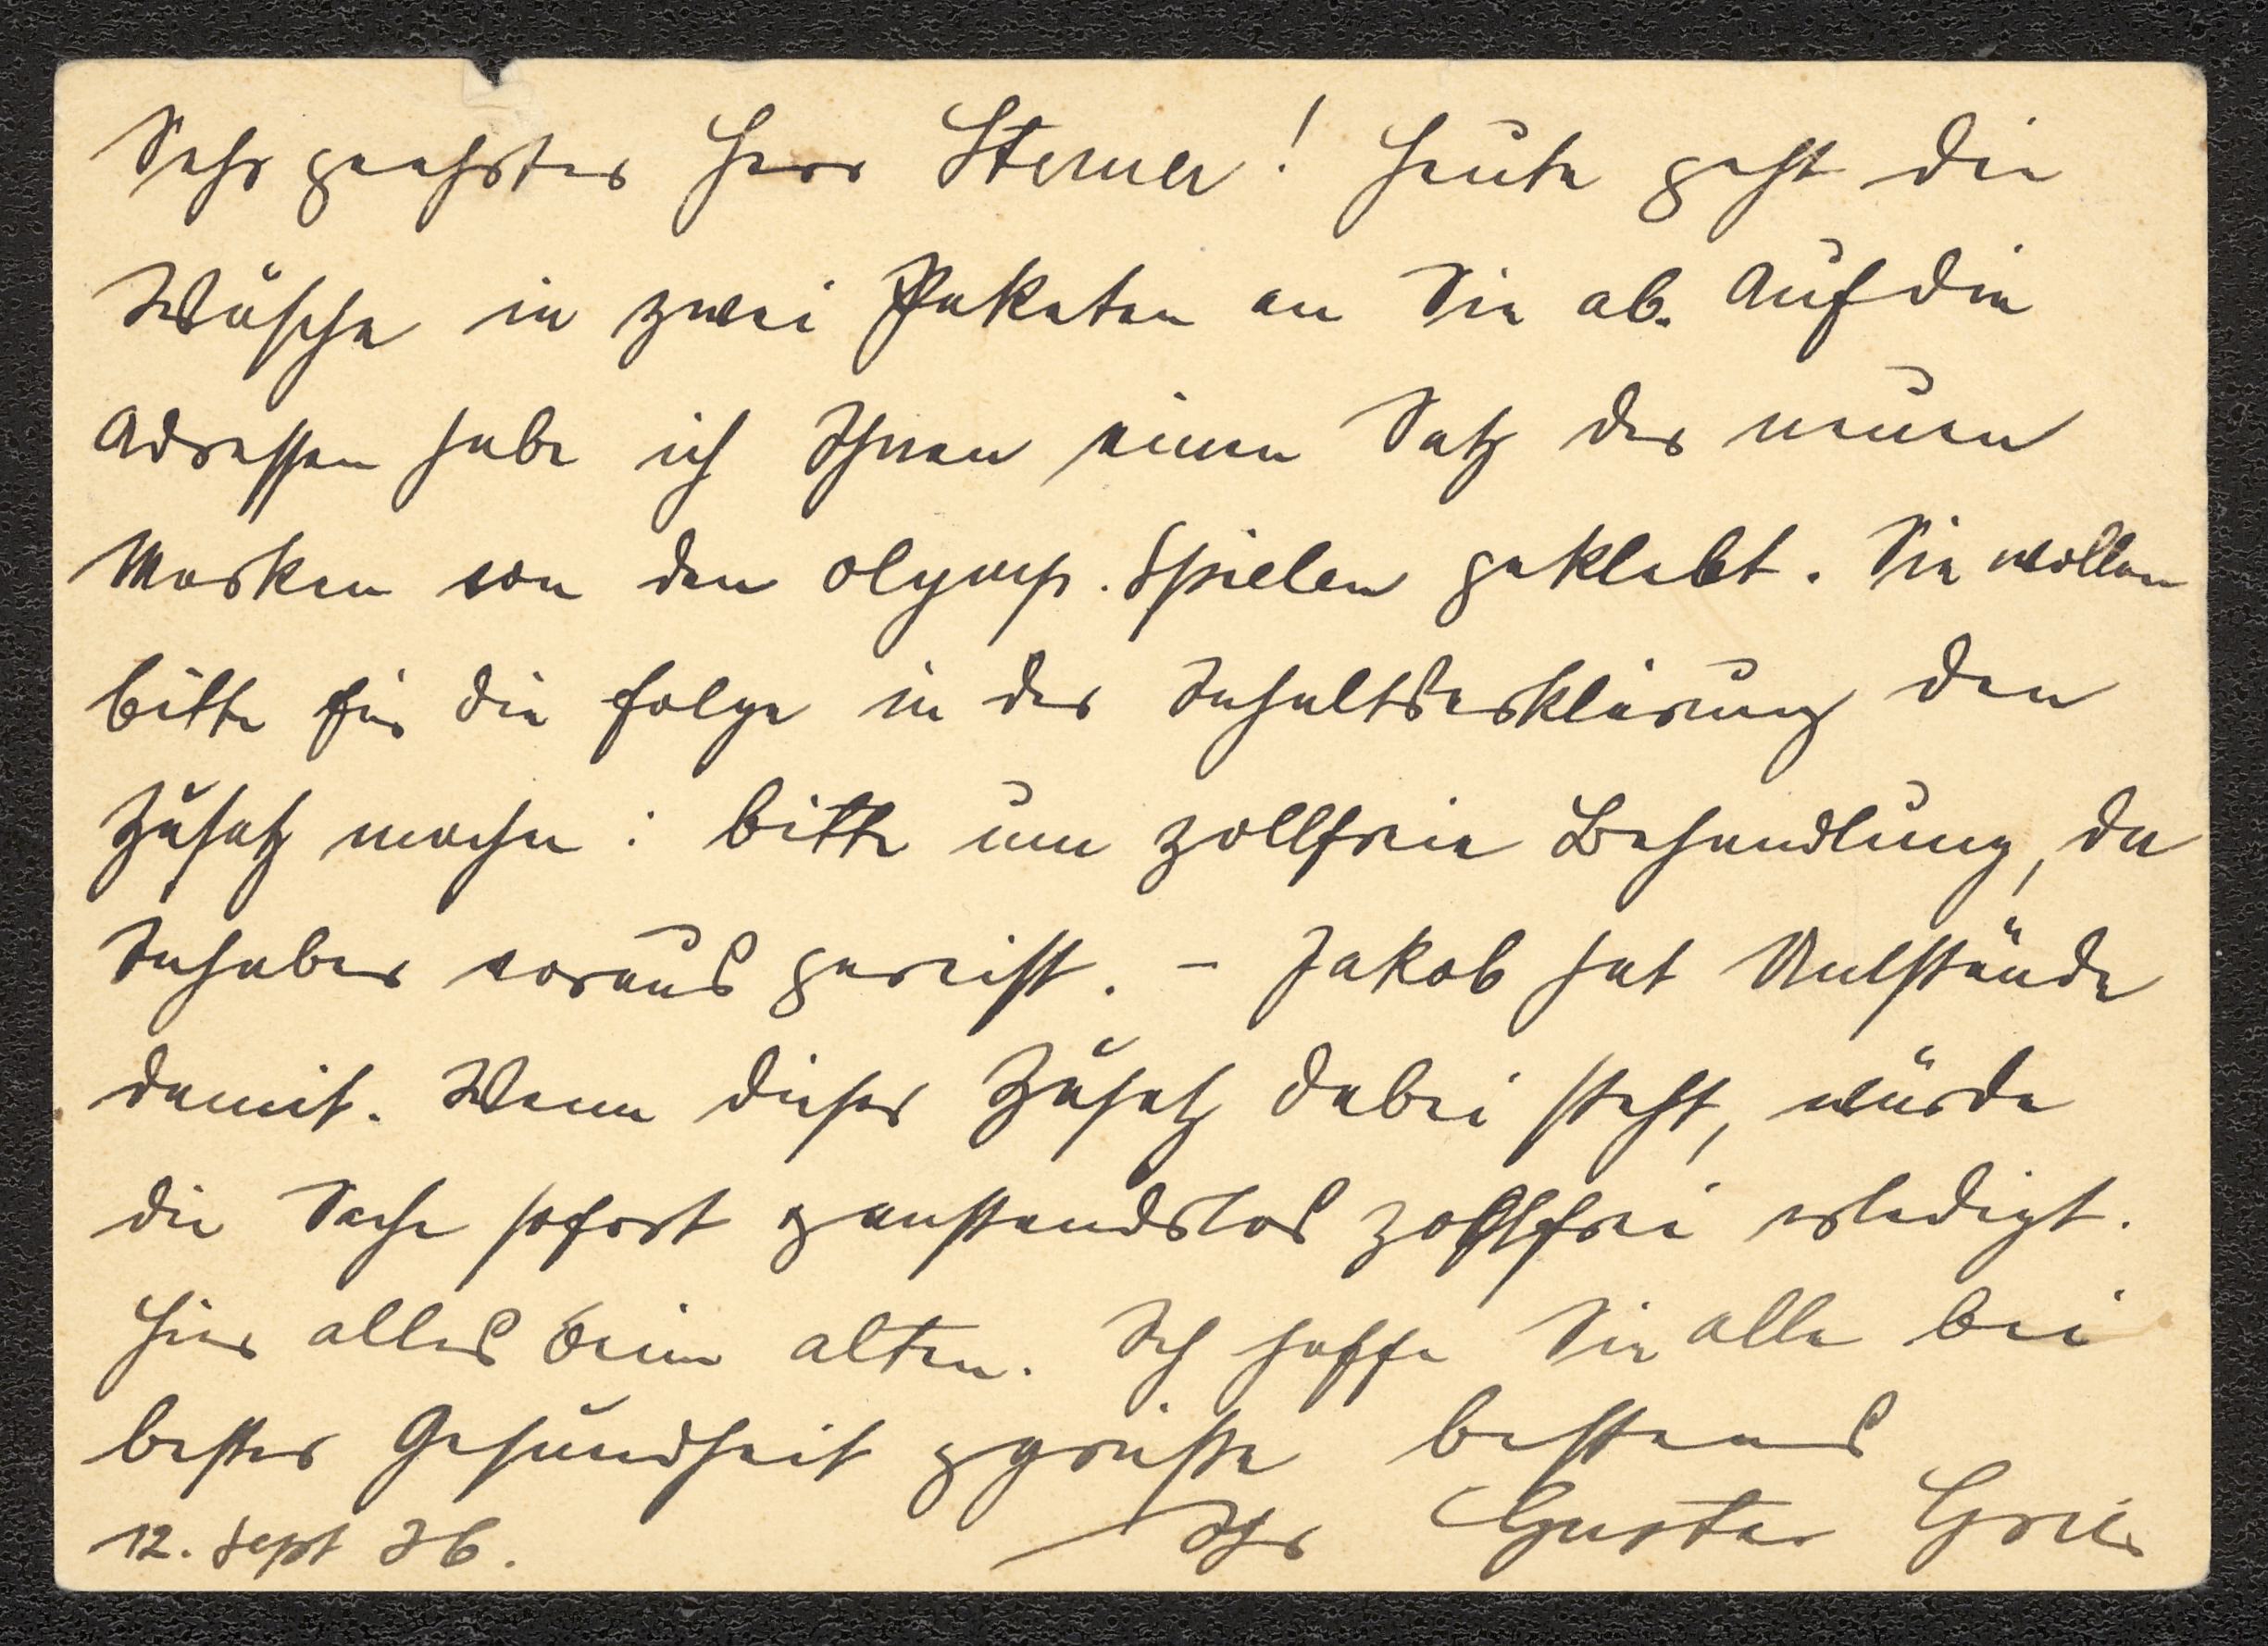 Sehr geehrter Herr Sterner! Heute geht die
Wäsche in zwei Paketen an Sie ab. Auf die
Adressen habe ich Ihnen einen Satz der neuen
Marken von den olymp. Spielen geklebt. Sie wollen
bitte für die Folge in der Inhaltserklärung den
Zusatz machen: bitte um zollfreie Behandlung, da
Inhaber voraus gereist. – Jakob hat Umstände
damit. Wenn dieser Zusatz dabei steht, würde
die Sache sofort anstandslos zollfrei erledigt.
Hier alles beim alten. Ich hoffe Sie alle bei
bester Gesundheit & grüße bestens
12. Sept 36. Ihr Gustav